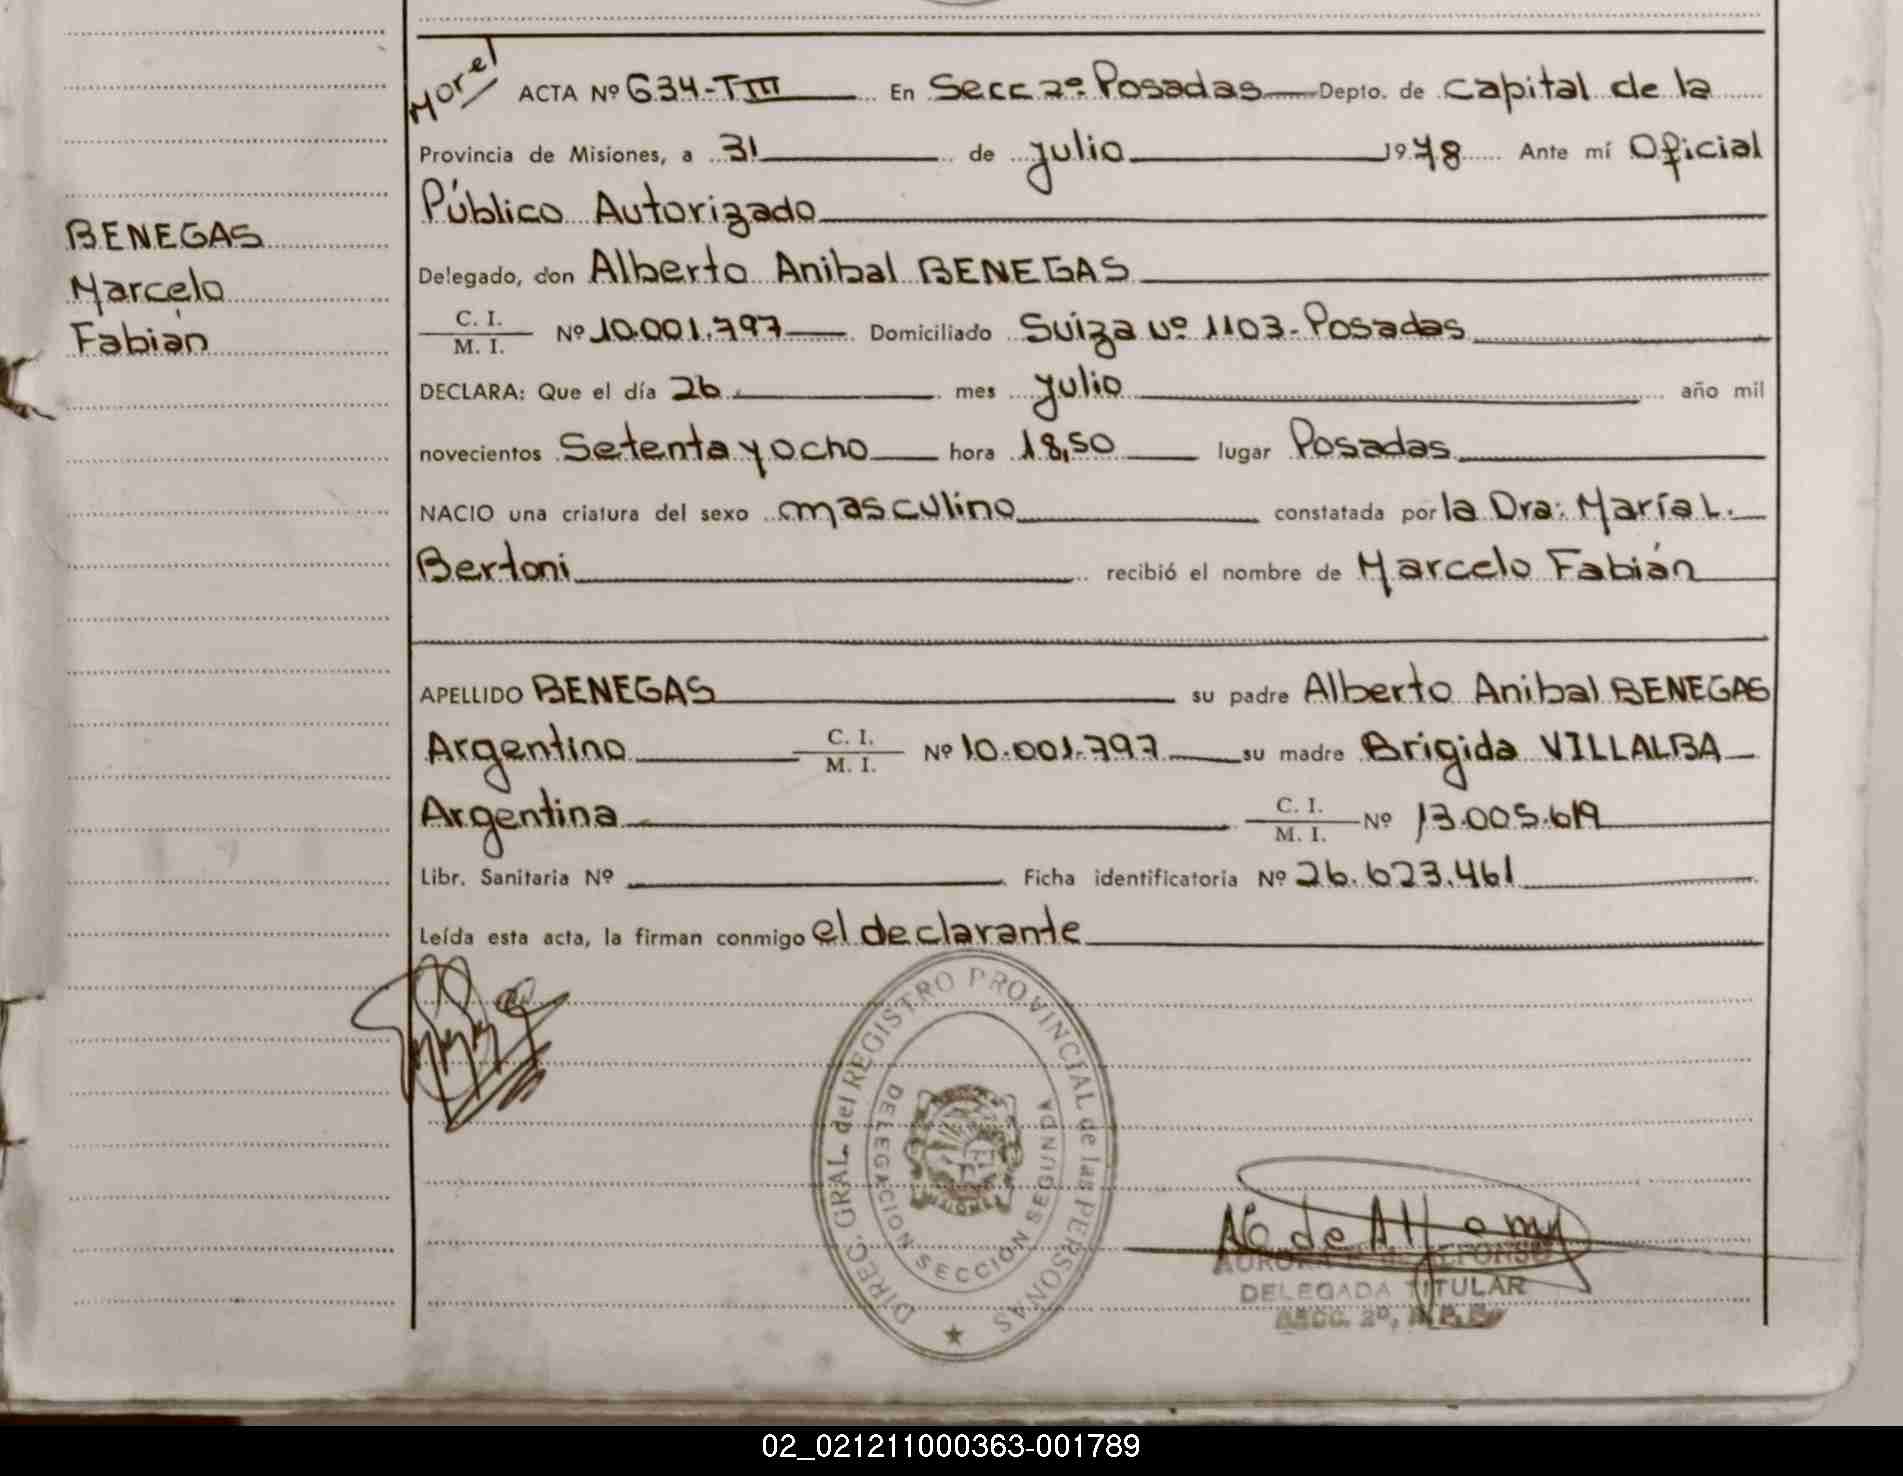 BENEGAS
Marcelo
Fabián
Morel
ACTA Nº 634-TIII En Secc 2º Posadas Depto. de Capital de la
Provincia de Misiones, a 31 de julio 1978 Ante mí Oficial
Público Autorizado
Delegado, don Alberto Anibal BENEGAS
C. I.
M. I. Nº 10.001.797 Domiciliado Suiza Nº 1103-Posadas
DECLARA: Que el día 26 mes julio año mil
novecientos Setenta y ocho hora 18,50 lugar Posadas
NACIO una criatura del sexo masculino constatada por la Dra: María L.
Bertoni recibió el nombre de Marcelo Fabián
APELLIDO BENEGAS su padre Alberto Anibal BENEGAS
Argentino C. I.
M. I. Nº 10.001.797 su madre Brigida VILLALBA
Argentina C. I.
M. I. Nº 13.005.619
Libr. Sanitaria Nº Ficha identificatoria Nº 26.623.461
Leída esta acta, la firman conmigo el declarante
DIREC. GRAL. del REGISTRO PROVINCIAL de las PERSONAS
DELEGACION SECCION SEGUNDA
DELEGADA TITULAR
SECC. 2º,
02_021211000363-001789